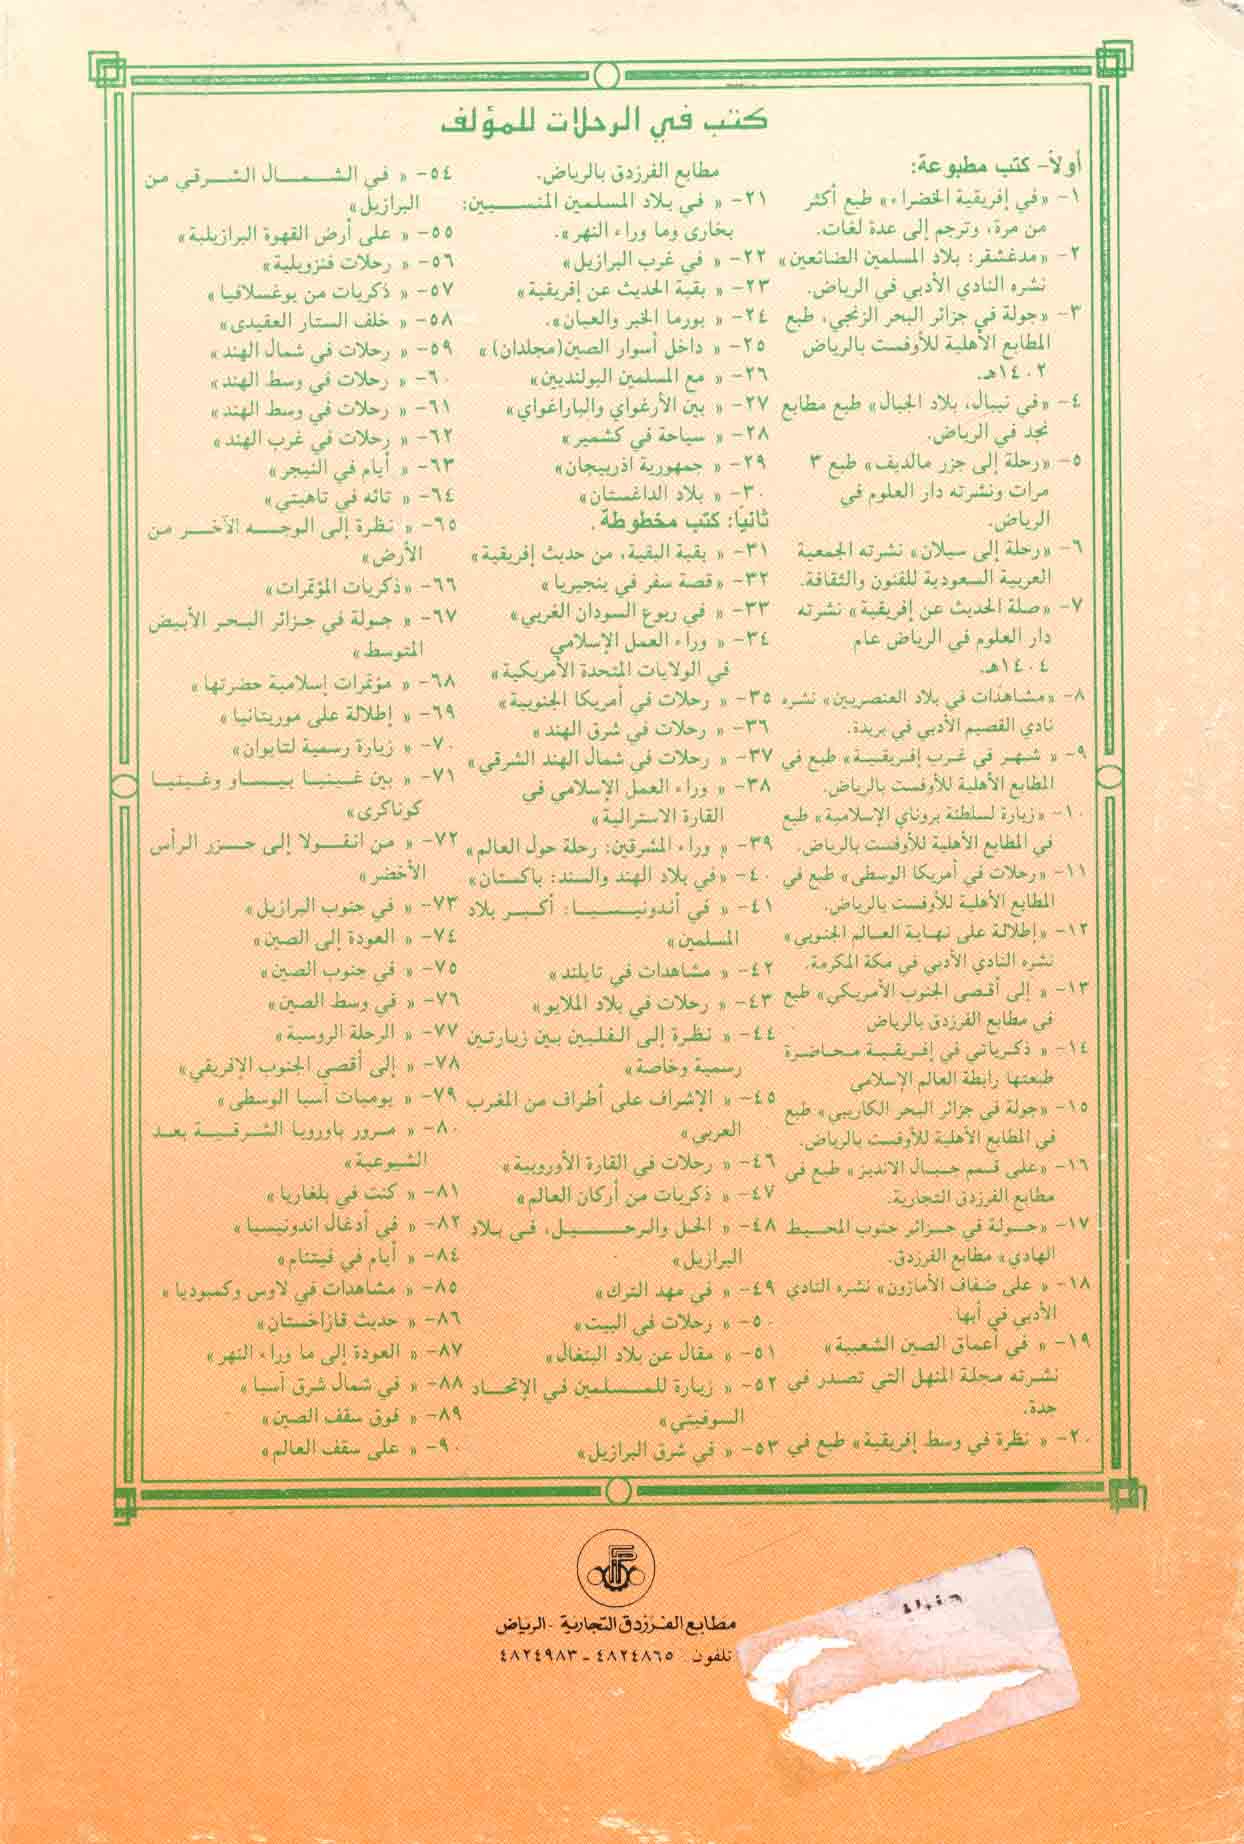 كتب في الرحلات للمؤلف
أولاً- كتب مطبوعة:
١- «في إفريقية الخضراء» طبع أكثر
من مرة، وترجم إلى عدة لغات.
٢- «مدغشقر: بلاد المسلمين الضائعين»
نشره النادي الأدبي في الرياض.
٣- «جولة في جزائر البحر الزنجي، طبع
المطابع الأهلية للأوفست بالرياض
١٤٠٢هـ.
٤- «في نيبال، بلاد الجبال» طبع مطابع
نجد في الرياض.
٥- «رحلة إلى جزر مالديف» طبع ٣
مرات ونشرته دار العلوم في
الرياض.
٦- «رحلة إلى سيلان» نشرته الجمعية
العربية السعودية للفنون والثقافة.
٧- «صلة الحديث عن إفريقية» نشرته
دار العلوم في الرياض عام
١٤٠٤هـ.
٨- «مشاهدات في بلاد العنصريين» نشره
نادي القصيم الأدبي في بريدة.
٩- « شهر في غرب إفريقية» طبع في
المطابع الأهلية للأوفست بالرياض.
١٠- «زيارة لسلطنة بروناي الإسلامية» طبع
في المطابع الأهلية للأوفست بالرياض.
١١- «رحلات في أمريكا الوسطى» طبع في
المطابع الأهلية للأوفست بالرياض.
١٢- «إطلالة على نهاية العالم الجنوبي»
نشره النادي الأدبي في مكة المكرمة.
١٣- « إلى أقصى الجنوب الأمريكي» طبع
في مطابع الفرزدق بالرياض
١٤- « ذكرياتي في إفريقية محاضرة
طبعتها رابطة العالم الإسلامي
١٥- «جولة في جزائر البحر الكاريبي» طبع
في المطابع الأهلية للأوفست بالرياض.
١٦- «على قمم جبال الانديز» طبع في
مطابع الفرزدق التجارية.
١٧- «جولة في جزائر جنوب المحيط
الهادي» مطابع الفرزدق.
١٨- « على ضفاف الأمازون» نشره النادي
الأدبي في أبها.
١٩- « في أعماق الصين الشعبية»
نشرته مجلة المنهل التي تصدر في
جدة.
٢٠- « نظرة في وسط إفريقية» طبع في
مطابع الفرزدق بالرياض.
٢١- « في بلاد المسلمين المنسيين:
بخارى وما وراء النهر».
٢٢- « في غرب البرازيل»
٢٣- « بقية الحديث عن إفريقية»
٢٤- « بورما الخبر والعيان».
٢٥- « داخل أسوار الصين(مجلدان)»
٢٦- « مع المسلمين البولنديين»
٢٧- « بين الأرغواي والباراغواي»
٢٨- « سياحة في كشمير»
٢٩- « جمهورية اذربيجان»
٣٠- « بلاد الداغستان»
ثانيًا: كتب مخطوطة.
٣١- « بقية البقية، من حديث إفريقية»
٣٢- «قصة سفر في ينجيريا»
٣٣- « في ربوع السودان الغربي»
٣٤- « وراء العمل الإسلامي
في الولايات المتحدة الأمريكية»
٣٥- « رحلات في أمريكا الجنوبية»
٣٦- « رحلات في شرق الهند»
٣٧- « رحلات في شمال الهند الشرقي»
٣٨- « وراء العمل الإسلامي في
القارة الاسترالية»
٣٩- « وراء المشرقين: رحلة حول العالم»
٤٠- «في بلاد الهند والسند: باكستان»
٤١- « في أندونيسيا: أكبر بلاد
المسلمين»
٤٢- « مشاهدات في تايلند»
٤٣- « رحلات في بلاد الملايو»
٤٤- « نظرة إلى الفلبين بين زيارتين
رسمية وخاصة»
٤٥- « الإشراف على أطراف من المغرب
العربي»
٤٦- « رحلات في القارة الأوروبية»
٤٧- « ذكريات من أركان العالم»
٤٨- « الحل والرحيل، في بلاد
البرازيل»
٤٩- « في مهد الترك»
٥٠- « رحلات في البيت»
٥١- « مقال عن بلاد البنغال»
٥٢- « زيارة للمسلمين في الإتحاد
السوفيتي»
٥٣- « في شرق البرازيل»
٥٤- « في الشمال الشرقي من
البرازيل»
٥٥- « على أرض القهوة البرازيلية»
٥٦- « رحلات فنزويلية»
٥٧- « ذكريات من يوغسلافيا»
٥٨- « خلف الستار العقيدى»
٥٩- « رحلات في شمال الهند»
٦٠- « رحلات في وسط الهند»
٦١- « رحلات في وسط الهند»
٦٢- « رحلات في غرب الهند»
٦٣- « أيام في النيجر»
٦٤- « تائه في تاهيتي»
٦٥- « نظرة إلى الوجه الآخر من
الأرض»
٦٦- «ذكريات المؤتمرات»
٦٧- « جولة في جزائر البحر الأبيض
المتوسط»
٦٨- « مؤتمرات إسلامية حضرتها»
٦٩- « إطلالة على موريتانيا»
٧٠- « زيارة رسمية لتايوان»
٧١- « بين غينيا بيساو وغينيا
كوناكرى»
٧٢- « من انقولا إلى جزر الرأس
الأخضر»
٧٣- « في جنوب البرازيل»
٧٤- « العودة إلى الصين»
٧٥- « في جنوب الصين»
٧٦- « في وسط الصين»
٧٧- « الرحلة الروسية»
٧٨- « إلى أقصى الجنوب الإفريقي»
٧٩- « يوميات آسيا الوسطى»
٨٠- « مرور بأوروبا الشرقية بعد
الشيوعية»
٨١- « كنت في بلغاريا»
٨٢- « في أدغال اندونيسيا»
٨٤- « أيام في فيتنام»
٨٥- « مشاهدات في لاوس وكمبوديا»
٨٦- « حديث قازاخستان»
٨٧- « العودة إلى ما وراء النهر»
٨٨- « في شمال شرق آسيا»
٨٩- « فوق سقف الصين»
٩٠- « على سقف العالم»
مطابع الفرزدق التجارية - الرياض
تلفون ٤٨٢٤٨٦٥ - ٤٨٢٤٩٨٣